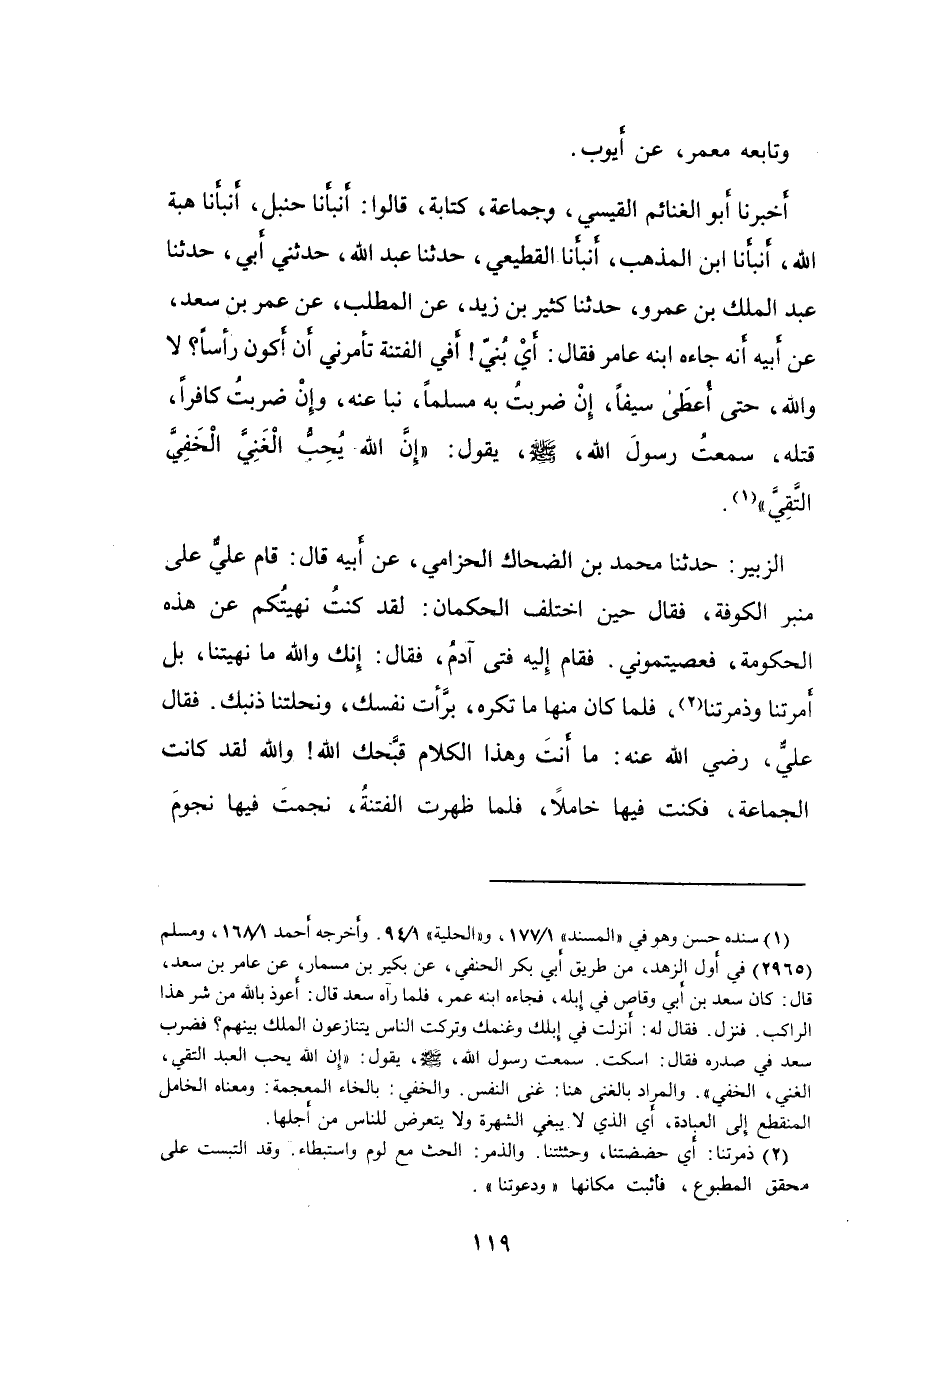 وتابعه معمر، عن أيوب.
أخبرنا أبو الغنائم القيسي، وجماعة، كتابة، قالوا: أنبأنا حنبل، أنبأنا هبة
الله، أنبأنا ابن المذهب، أنبأنا القطيعي، حدثنا عبد الله، حدثني أبي، حدثنا
عبد الملك بن عمرو، حدثنا كثير بن زيد، عن المطلب، عن عمر بن سعد،
عن أبيه أنه جاءه ابنه عامر فقال: أيْ بُنيّ! أفي الفتنة تأمرني أن أكون رأساً؟ لا
والله، حتى أُعطَىٰ سيفاً، إنْ ضربتُ به مسلماً، نبا عنه، وإنْ ضربتُ كافراً،
قتله، سمعتُ رسولَ الله، ﷺ، يقول: «إنَّ الله يُحِبُّ الْغَنِيَّ الْخَفِيَّ
التَّقِيَّ»(١).
الزبير: حدثنا محمد بن الضحاك الحزامي، عن أبيه قال: قام عليٌّ على
منبر الكوفة، فقال حين اختلف الحكمان: لقد كنتُ نهيتُكم عن هذه
الحكومة، فعصيتموني. فقام إليه فتى آدمُ، فقال: إنك والله ما نهيتنا، بل
أمرتنا وذمرتنا(٢)، فلما كان منها ما تكره، برَّأت نفسك، ونحلتنا ذنبك. فقال
عليٌّ، رضي الله عنه: ما أنتَ وهذا الكلام قبَّحك الله! والله لقد كانت
الجماعة، فكنت فيها خاملًا، فلما ظهرت الفتنةُ، نجمتَ فيها نجومَ
(١) سنده حسن وهو في «المسند» ١٧٧/١، و«الحلية» ٩٤/١. وأخرجه أحمد ١٦٨/١، ومسلم
(٢٩٦٥) في أول الزهد، من طريق أبي بكر الحنفي، عن بكير بن مسمار، عن عامر بن سعد،
قال: كان سعد بن أبي وقاص في إبله، فجاءه ابنه عمر، فلما رآه سعد قال: أعوذ بالله من شر هذا
الراكب. فنزل. فقال له: أنزلت في إبلك وغنمك وتركت الناس يتنازعون الملك بينهم؟ فضرب
سعد في صدره فقال: اسكت. سمعت رسول الله، ﷺ، يقول: «إن الله يحب العبد التقي،
الغني، الخفي». والمراد بالغنى هنا: غنى النفس. والخفي: بالخاء المعجمة: ومعناه الخامل
المنقطع إلى العبادة، أي الذي لا يبغي الشهرة ولا يتعرض للناس من أجلها.
(٢) ذمرتنا: أي حضضتنا، وحثثتنا. والذمر: الحث مع لوم واستبطاء. وقد التبست على
محقق المطبوع، فأثبت مكانها «ودعوتنا».
١١٩